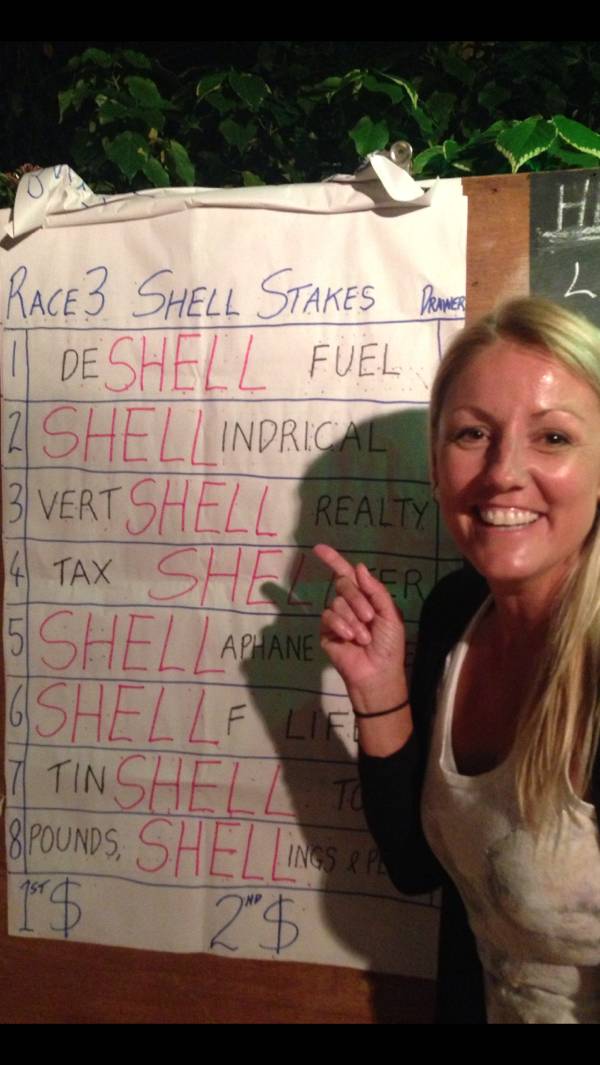 RACE 3 SHELL STAKES DRAWER
1 DESHELL FUEL
2 SHELLINDRICAL
3 VERTSHELL REALTY
4 TAX SHELTER
5 SHELLAPHANE
6 SHELLF LIFE
7 TINSHELL TO
8 POUNDS, SHELLINGS & PE
1ST $ 2ND $
H
L